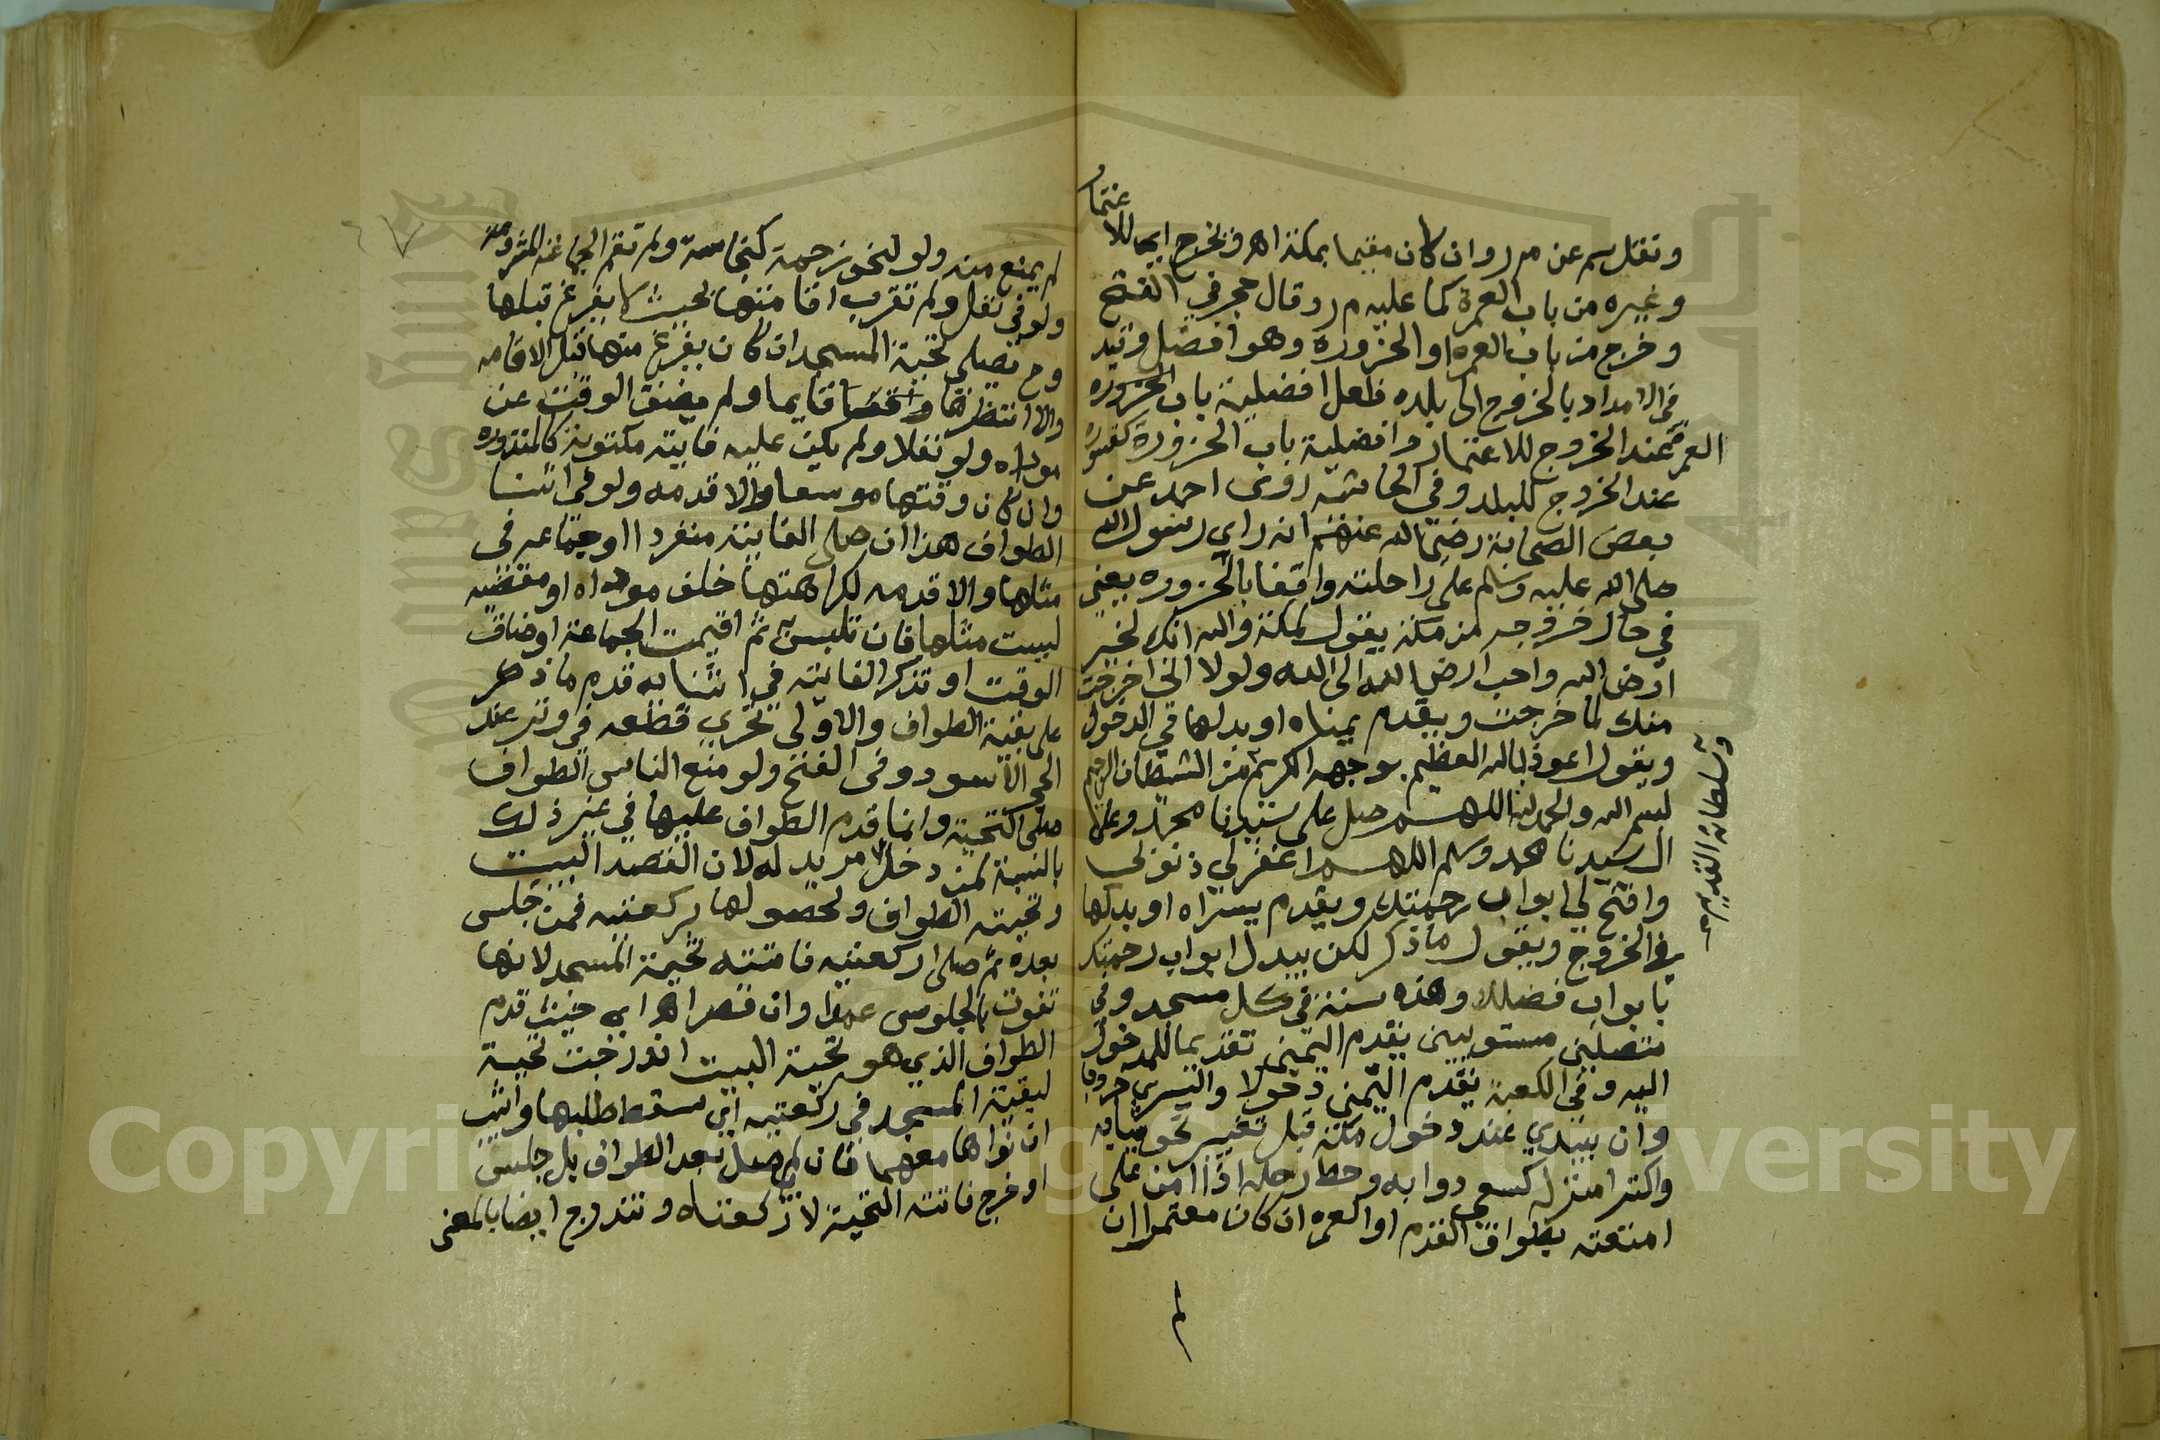 ونقل سم عن م ر وان كان مقيما بمكة اهـ فخرج ايها للاعتمار
وغيره من باب العمرة كما عليه م ر وقال حجر في الفتح
وخرج من باب العمره او الحزوره وهو افضل وقيد
في الامداد بالخروج الى بلده فلعل افضلية باب الحزوره
العمرة عند الخروج للاعتمار وافضلية باب الحزورة كغيره
عند الخروج للبلد وفي الحاشيه روى احمد عن
بعض الصحابة رضى الله عنهم انه راي رسول الله
صلى الله عليه وسلم على راحلته واقفا بالحزوره يعني
في حال خروجه من مكة يقول لمكة والله انك لخير
ارض الله واحب ارض الله الى الله ولولا اني اخرجت
منك لما خرجت ويقدم يمناه او بدلها في الدخول
ويقول اعوذ بالله العظيم بوجهه الكريم من الشيطان الرجيم
وسلطانه القديم
بسم الله والحمد لله اللهم صل على سيدنا محمد وعلى
ال سيدنا محمد وسلم اللهم اغفر لي ذنوبي
وافتح لي ابواب رحمتك ويقدم يسراه او بدلها
في الخروج ويقول ما ذكر لكن يبدل ابواب رحمتك
بابواب فضلك وهذه سنة في كل مسجد وفي
متصلين مستويين يقدم اليمنى تقديما للدخول
اليه وفي الكعبة يقدم اليمنى دخولا واليسرى خروجا
وان يبتدي عند دخول مكة قبل تغيير نحو ثيابه
واكترا منزله كسعي دوابه وحط رحله اذا امن على
امتعته بطواف القدم او العمره ان كان معتمرا ان
لم
لم يمنع منه ولو لنحو زحمة كنجاسة ولم تقم الجماعة المشروعة
ولو في نفل ولم تقرب اقامتها بحيث لا يفرغ قبلها
وح يصلي تحية المسجد ان كان يفرغ منها قبل الاقامه
والا انتظرها قايما ولم يضق الوقت عن
موداه ولو نفلا ولم يكن عليه فايته مكتوبة كالمنذوره
وان كان وقتها موسعا والا قدمه ولو في اثنا
الطواف هذا ان صلى الفايتة منفردا او جماعه في
مثلها والا قدمه لكراهتها خلف موداه او مقضيه
ليست مثلها فان تلبس ثم اقيمت الجماعة او ضاق
الوقت او تذكر الفايته في اثنايه قدم ما ذكر
على بقية الطواف والاولى تحري قطعه في وتر عند
الحجر الاسود وفي الفتح ولو منع الناس الطواف
صلى التحية وانما قدم الطواف عليها في غير ذلك
بالنسبة لمن دخل مريد له لان القصد البيت
وتحيته الطواف ولحصولها بركعتيه فمن جلس
بعده ثم صلى ركعتيه فاتته تحية المسجد لانها
تفوت بالجلوس عمدا وان قصر اهـ اي حيث قدم
الطواف الذي هو تحية البيت اندرجت تحية
لبقية المسجد في ركعتيه اي سقط طلبها واثيب
ان نواها معهما فان لم يصل بعد الطواف بل جلس
او خرج فاتته التحية لا ركعتاه وتندرج ايضا بالمعنى